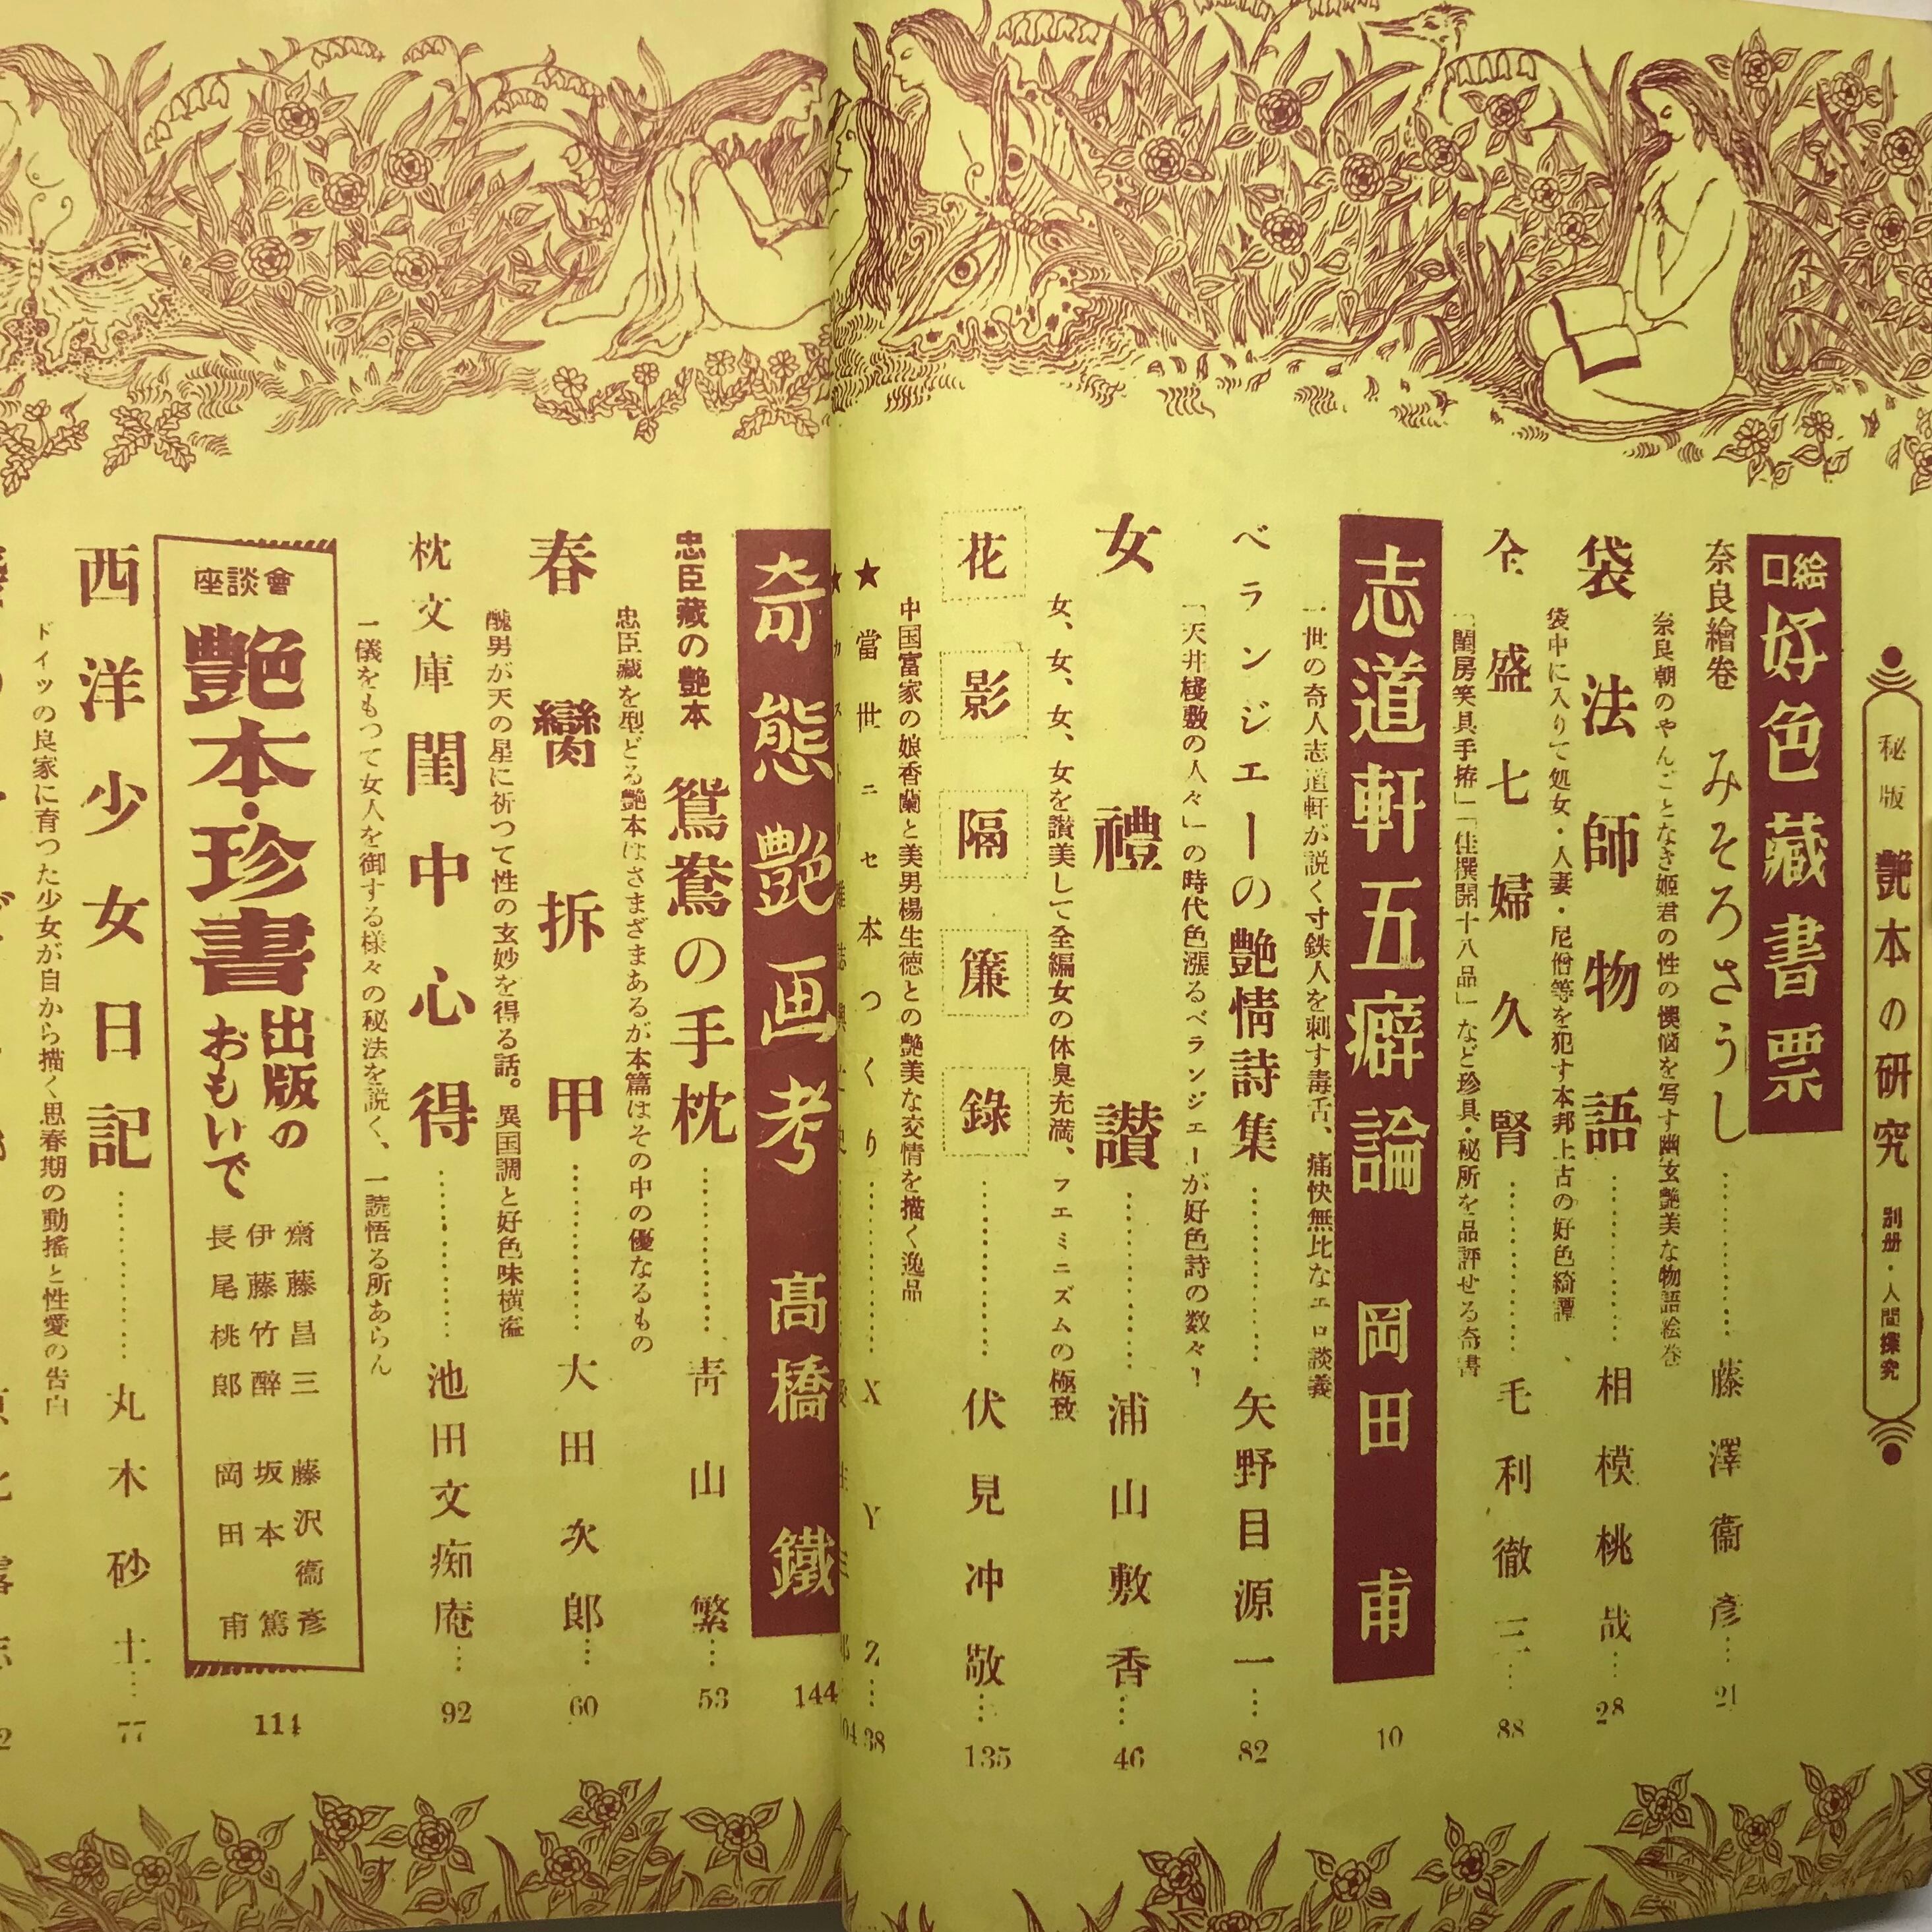 秘版 艶本の研究 別册・人間探究
口絵 好色藏書票
奈良繪卷 みそろさうし…………藤澤衞彦…21
奈良朝のやんごとなき姫君の性の懊悩を写す幽玄艶美な物語絵巻
袋法師物語…………相模桃哉…28
袋中に入りて処女・人妻・尼僧等を犯す本邦上古の好色綺譚
全盛七婦久腎…………毛利徹三…88
「閨房笑具手拵」「佳撰開十八品」など珍具・秘所を品評せる奇書
志道軒五癖論 岡田甫 10
一世の奇人志道軒が説く寸鉄人を刺す毒舌、痛快無比なエロ談義
ベランジエーの艶情詩集…………矢野目源一…82
「天井棧敷の人々」の時代色漲るベランジェーが好色詩の数々！
女禮讃…………浦山敷香…46
女、女、女、女を讃美して全編女の体臭充満、フエミニズムの極致
花影隔簾錄…………伏見冲敬…135
中国富家の娘香蘭と美男楊生徳との艶美な交情を描く逸品
★當世ニセ本つくり…………XYZ…38
奇態艶画考 高橋鐵 144
忠臣藏の艶本 鴛鴦の手枕…………靑山繁…53
忠臣藏を型どる艶本はさまざまあるが本篇はその中の優なるもの
春臠拆甲…………大田次郎…60
醜男が天の星に祈つて性の玄妙を得る話。異国調と好色味横溢
枕文庫 閨中心得…………池田文痴庵…92
一儀をもつて女人を御する様々の秘法を説く、一読悟る所あらん
座談會 艶本・珍書出版のおもいで
齋藤昌三 藤沢衞彦
伊藤竹醉 坂本篤
長尾桃郎 岡田甫
114
西洋少女日記…………丸木砂土…77
ドイツの良家に育つた少女が自から描く思春期の動搖と性愛の告白